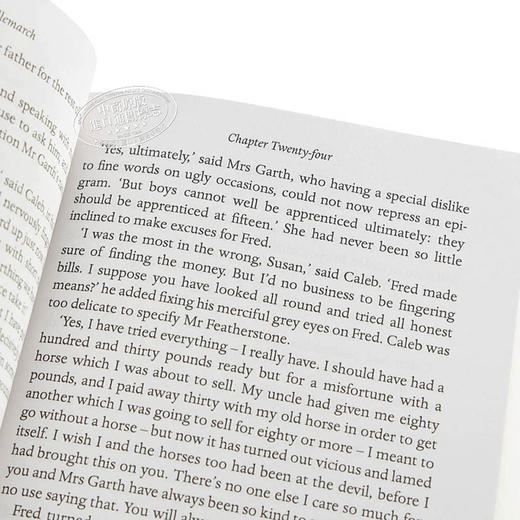 llemarch
father for the rest of
and speaking with
use to ask him,
tion Mr Garth,
said Caleb,
nervously
Chapter Twenty-four
'Yes, ultimately,' said Mrs Garth, who having a special dislike
to fine words on ugly occasions, could not now repress an epi-
gram. 'But boys cannot well be apprenticed ultimately: they
should be apprenticed at fifteen.' She had never been so little
inclined to make excuses for Fred.
'I was the most in the wrong, Susan,' said Caleb. 'Fred made
sure of finding the money. But I'd no business to be fingering
bills. I suppose you have looked all round and tried all honest
means?' he added fixing his merciful grey eyes on Fred. Caleb was
too delicate to specify Mr Featherstone.
'Yes, I have tried everything – I really have. I should have had a
hundred and thirty pounds ready but for a misfortune with a
horse which I was about to sell. My uncle had given me eighty
pounds, and I paid away thirty with my old horse in order to get
another which I was going to sell for eighty or more – I meant to
go without a horse – but now it has turned out vicious and lamed
itself. I wish I and the horses too had been at the devil, before I
had brought this on you. There's no one else I care so much for
you and Mrs Garth have always been so kind to
no use saying that. You will alw
Fred turned